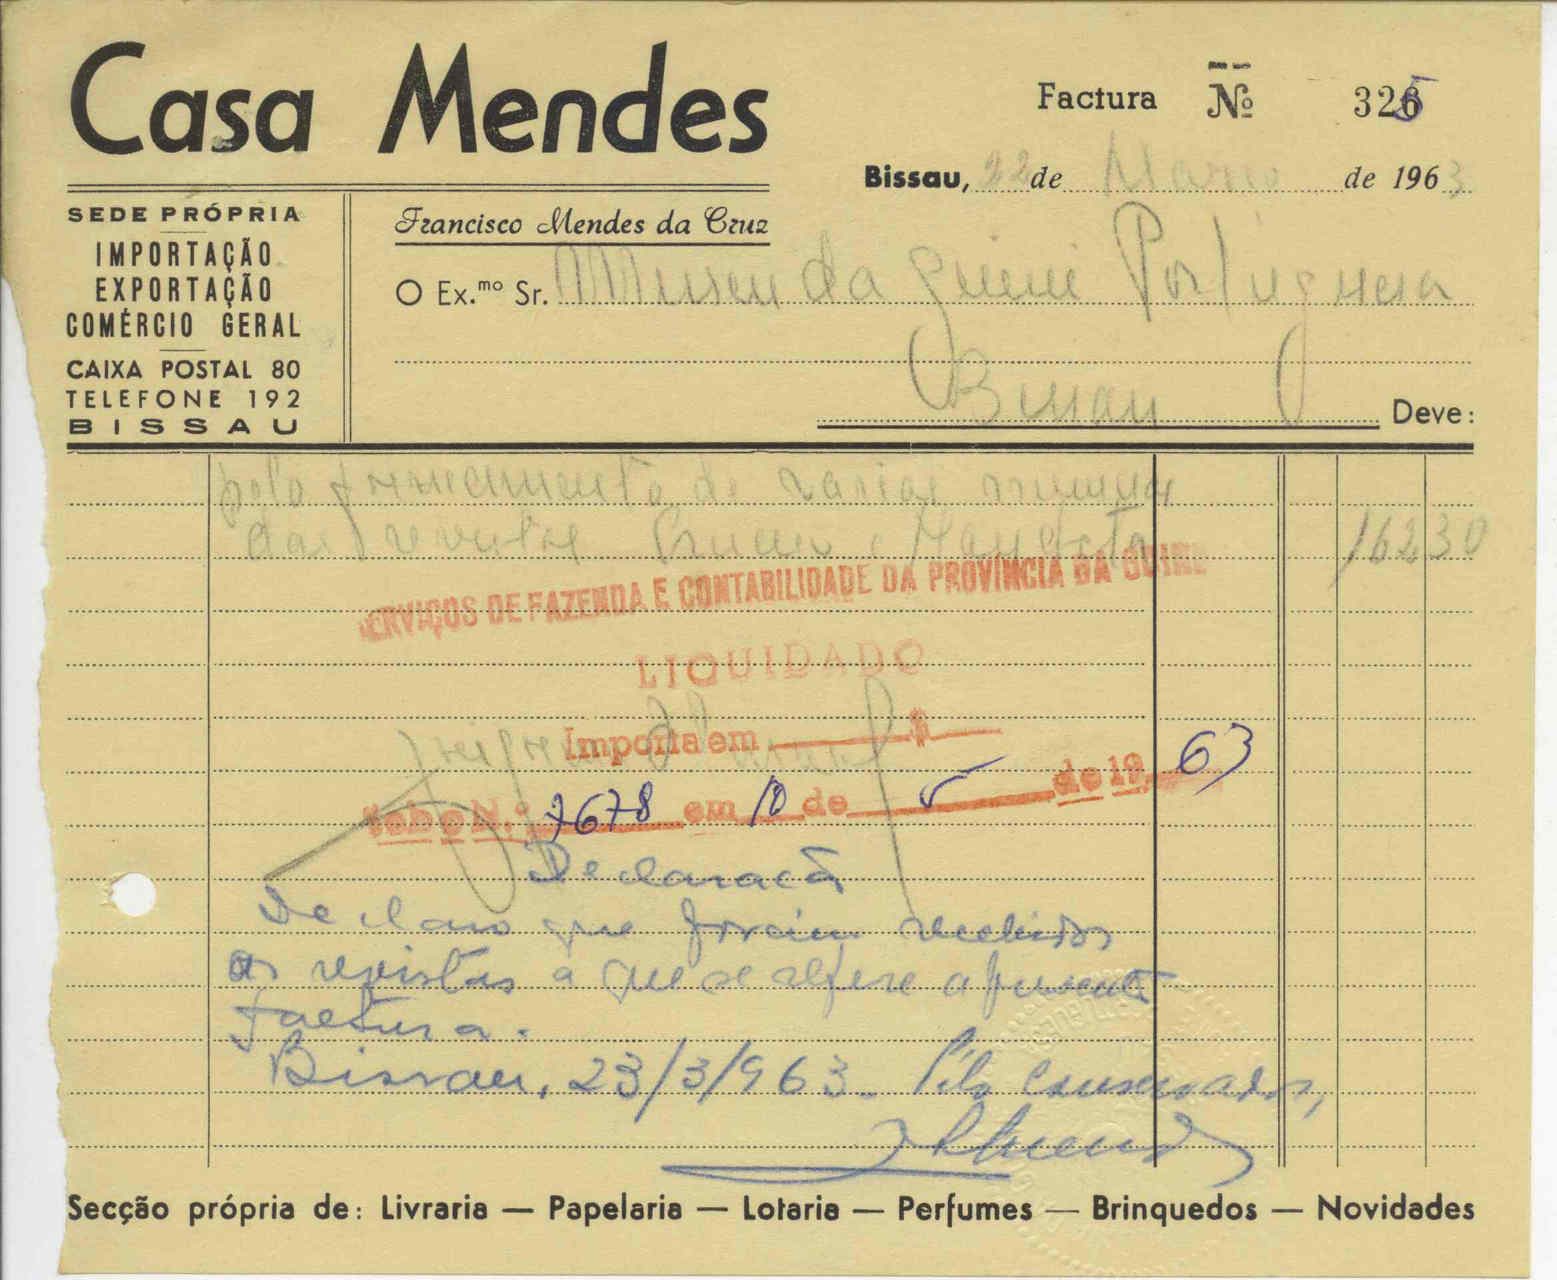 Casa Mendes
Factura Nº 325
Bissau, 22 de Março de 1963
SEDE PRÓPRIA
IMPORTAÇÃO
EXPORTAÇÃO
COMÉRCIO GERAL
CAIXA POSTAL 80
TELEFONE 192
BISSAU
Francisco Mendes da Cruz
O Ex.mo Sr. Museu da Guiné Portuguesa
Bissau Deve:
pelo fornecimento de varios numeros
das revistas Cruzeiro e Manchete 162 30
SERVIÇOS DE FAZENDA E CONTABILIDADE DA PROVÍNCIA DA GUINÉ
LIQUIDADO
Importa em $
7678 em 10 de 5 de 19 63
Declaração
Declaro que foram recebidos
as revistas a que se refere a presente
factura.
Bissau, 23/3/963. Pelo Conservador,
Secção própria de: Livraria — Papelaria — Lotaria — Perfumes — Brinquedos — Novidades